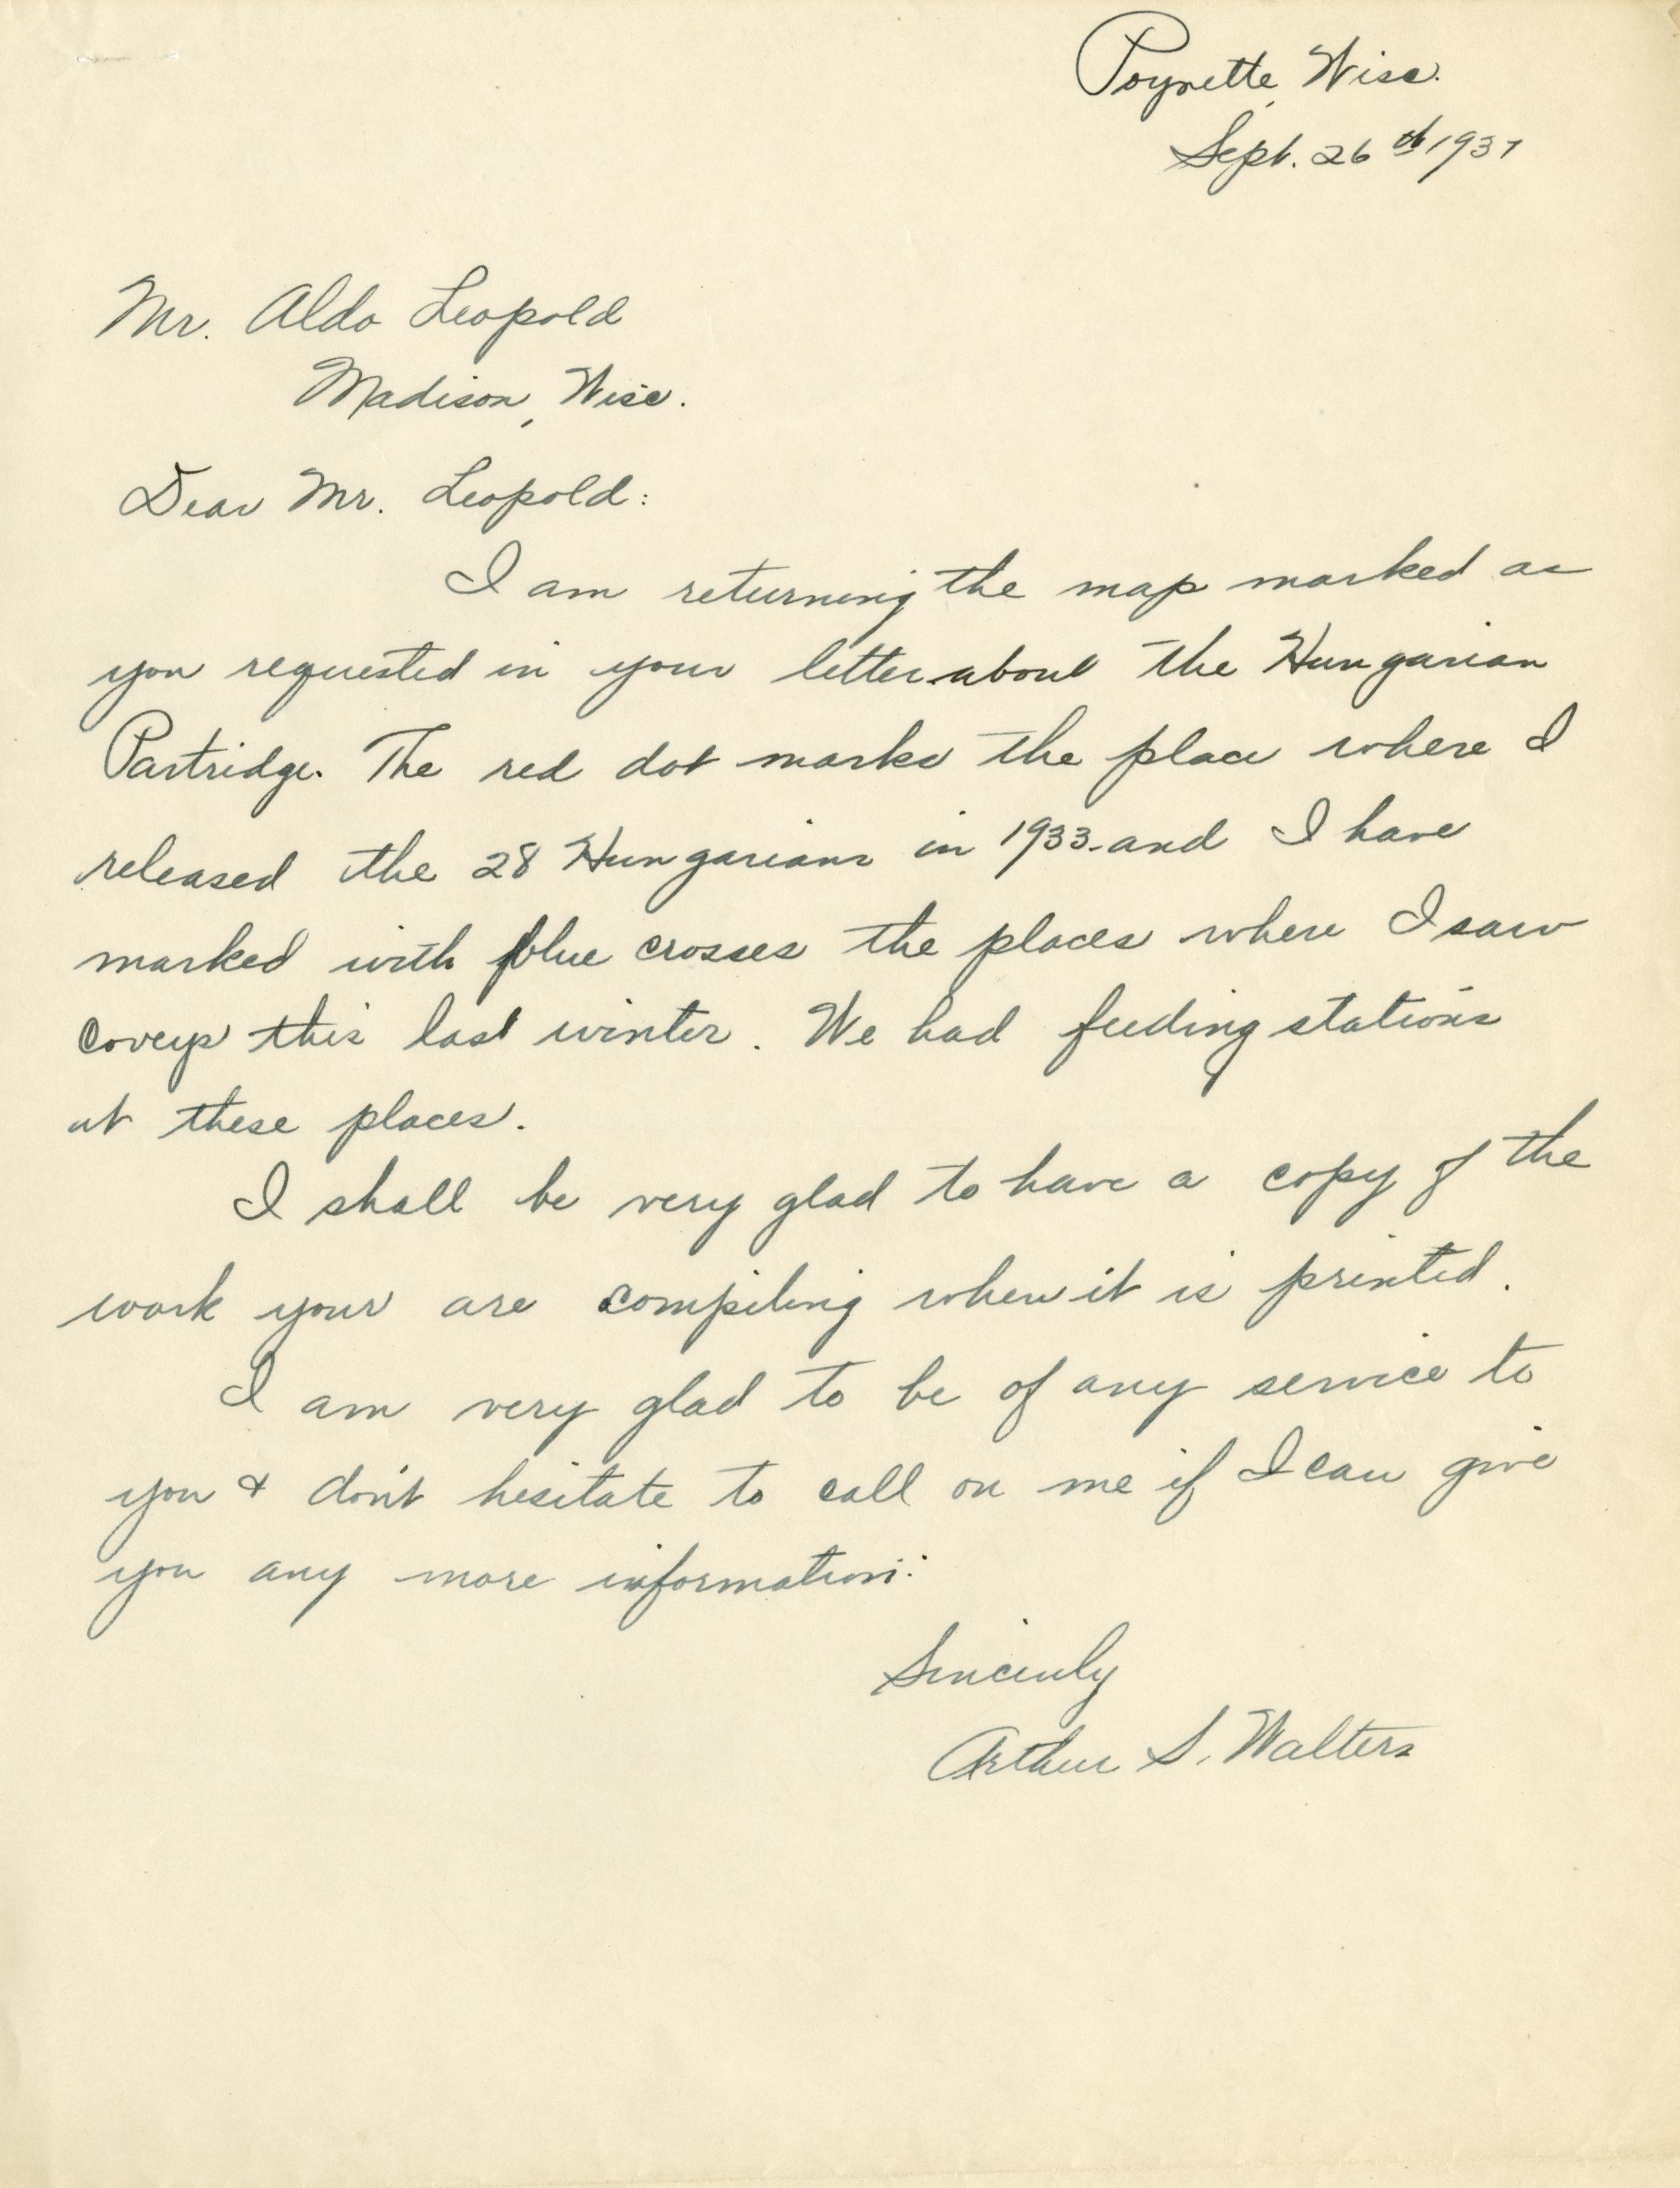 Poynette, Wisc.
Sept. 26th 1937
Mr. Aldo Leopold
Madison, Wisc.
Dear Mr. Leopold:
I am returning the map marked as
you requested in your letter about the Hungarian
Partridge. The red dot marks the place where I
released the 28 Hungarians in 1933 and I have
marked with blue crosses the places where I saw
coveys this last winter. We had feeding stations
at these places.
I shall be very glad to have a copy of the
work your are compiling when it is printed.
I am very glad to be of any service to
you & don't hesitate to call on me if I can give
you any more information.
Sincerely
Arthur S. Walters